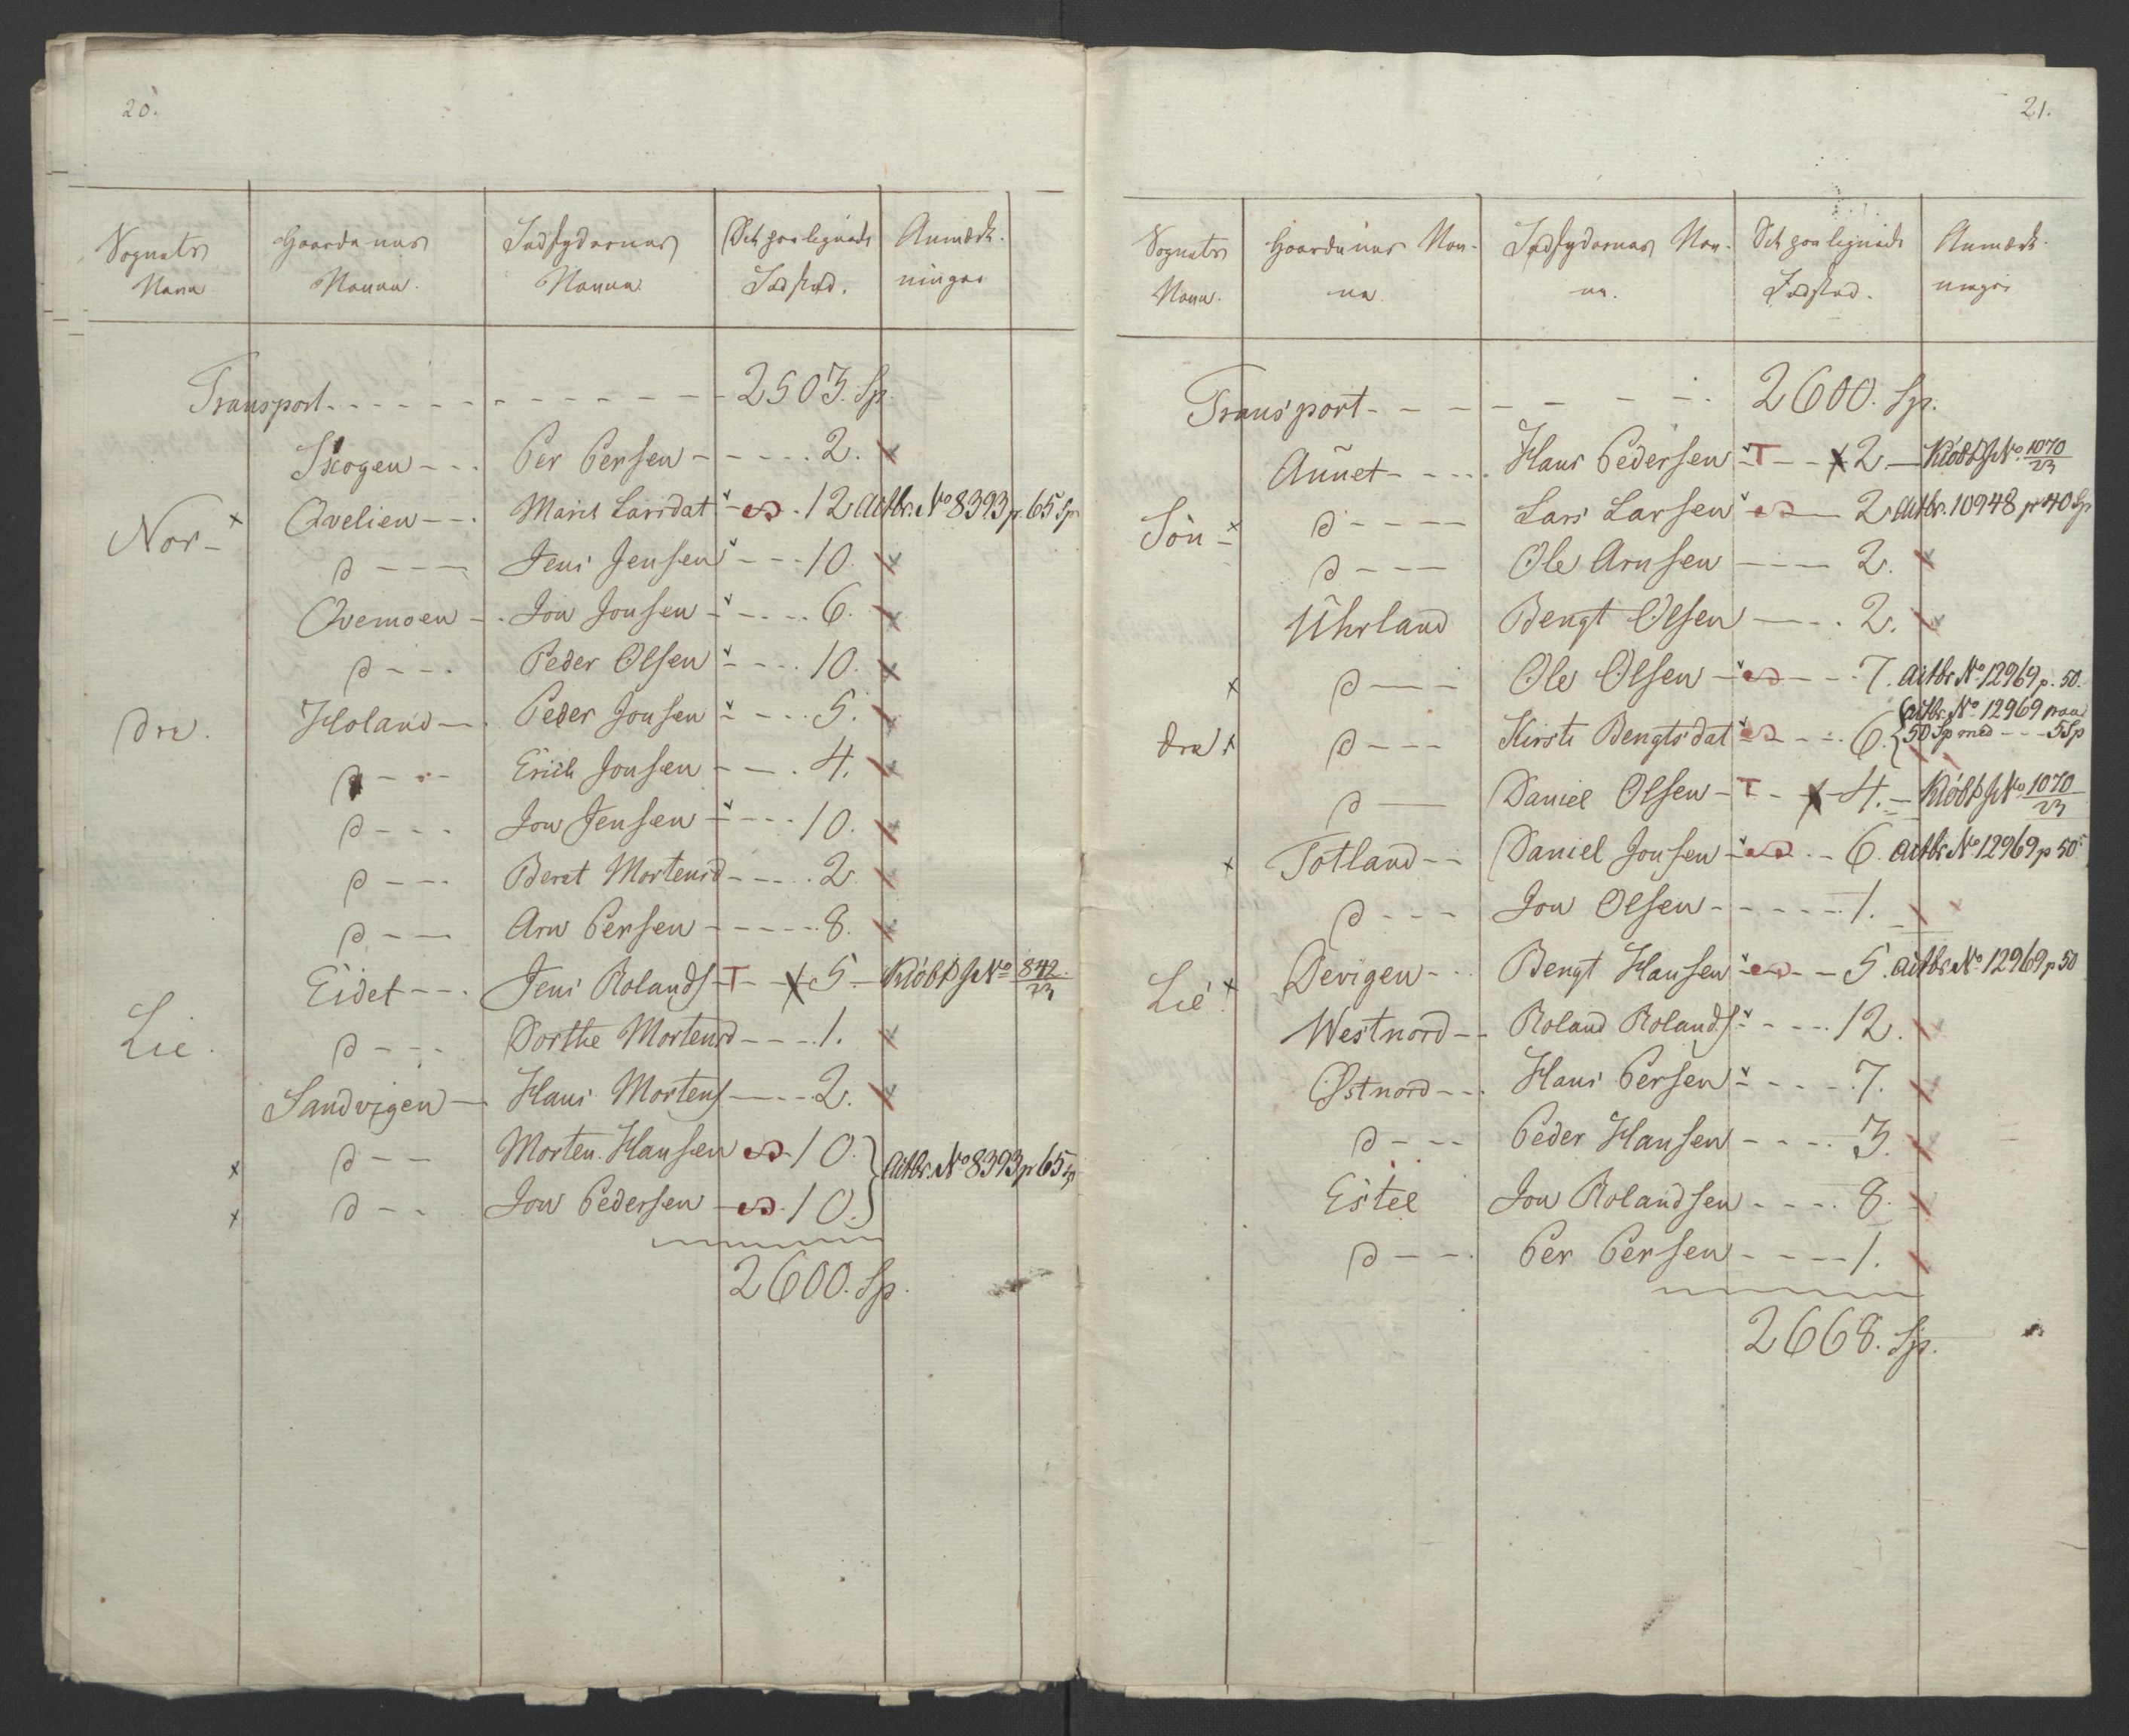 20.
Sognets Navn. Gaardenes Navne. Indskydernes Navne Det paalignede Indskud. Anmærk-ninger
Transport - - - - - - - - - - - 2503. Sp.
Skogen - - - Per Persen - - - - - 2.
Nor- Qvelien - - - Marit Larsdat - - 12 Actbr. No 8393 p. 65 Sp
d - - - Jens Jensen - - - 10.
Qvemoen - - Jon Jonsen - - - - 6.
d - - - Peder Olsen - - - - 10.
dre. Holand - - Peder Jonsen - - - - 5.
d - - - Erich Jonsen - - - 4.
d - - - Jon Jensen - - - - 10.
d - - - Beret Mortensd - - - - 2.
d - - - Arn Persen - - - - - 8.
Eidet - - - Jens Rolands - T - - 5. - Kiöbt No 842/23
Lie. d - - - Dorthe Mortensd - - - 1.
Sandvigen - Hans Mortens - - - - 2.
d - - Morten Hansen - 10.
d - - Jon Pedersen - 10. } Actbr. No 8393 p 65 Sp
2600. Sp.
21.
Sognets Navn. Gaardenes Nav-ne Indskydernes Nav-ne. Det paalignede Indskud. Anmærk-ninger
Transport - - - - - - - - 2600. Sp.
Aunet - - - - Hans Pedersen - T - - 2 - Kiöbt No. 1070/23
Sön- d - - - - Lars Larsen - - 2 Actbr. 10948 p 40 Sp
d - - - Ole Arnsen - - - - 2.
Uhrland Bengt Olsen - - - - 2.
d - - - Ole Olsen - - - - 7. Actbr No 12969 p. 50.
dre d - - - Kirsti Bengtsdat - - - 6. { Actbr. No 12969 paa
50 Sp med - - - 5 Sp
d - - Daniel Olsen - T - - 4. - Kiöbt No 1070/23
Totland - - Daniel Jonsen - - - 6. Actbr No 12969 p 50
d - - - Jon Olsen - - - - - 1.
Lie. Devigen - - Bengt Hansen - - - 5. Actbr No 12969 p 50
Westnord - - Roland Rolands - - - - 12.
Østnord - - - Hans Persen - - - - - 7.
d - - - Peder Hansen - - - - 3.
Estee Jon Rolandsen - - - - 8.
d - - - Per Persen - - - - 1.
2668. Sp.